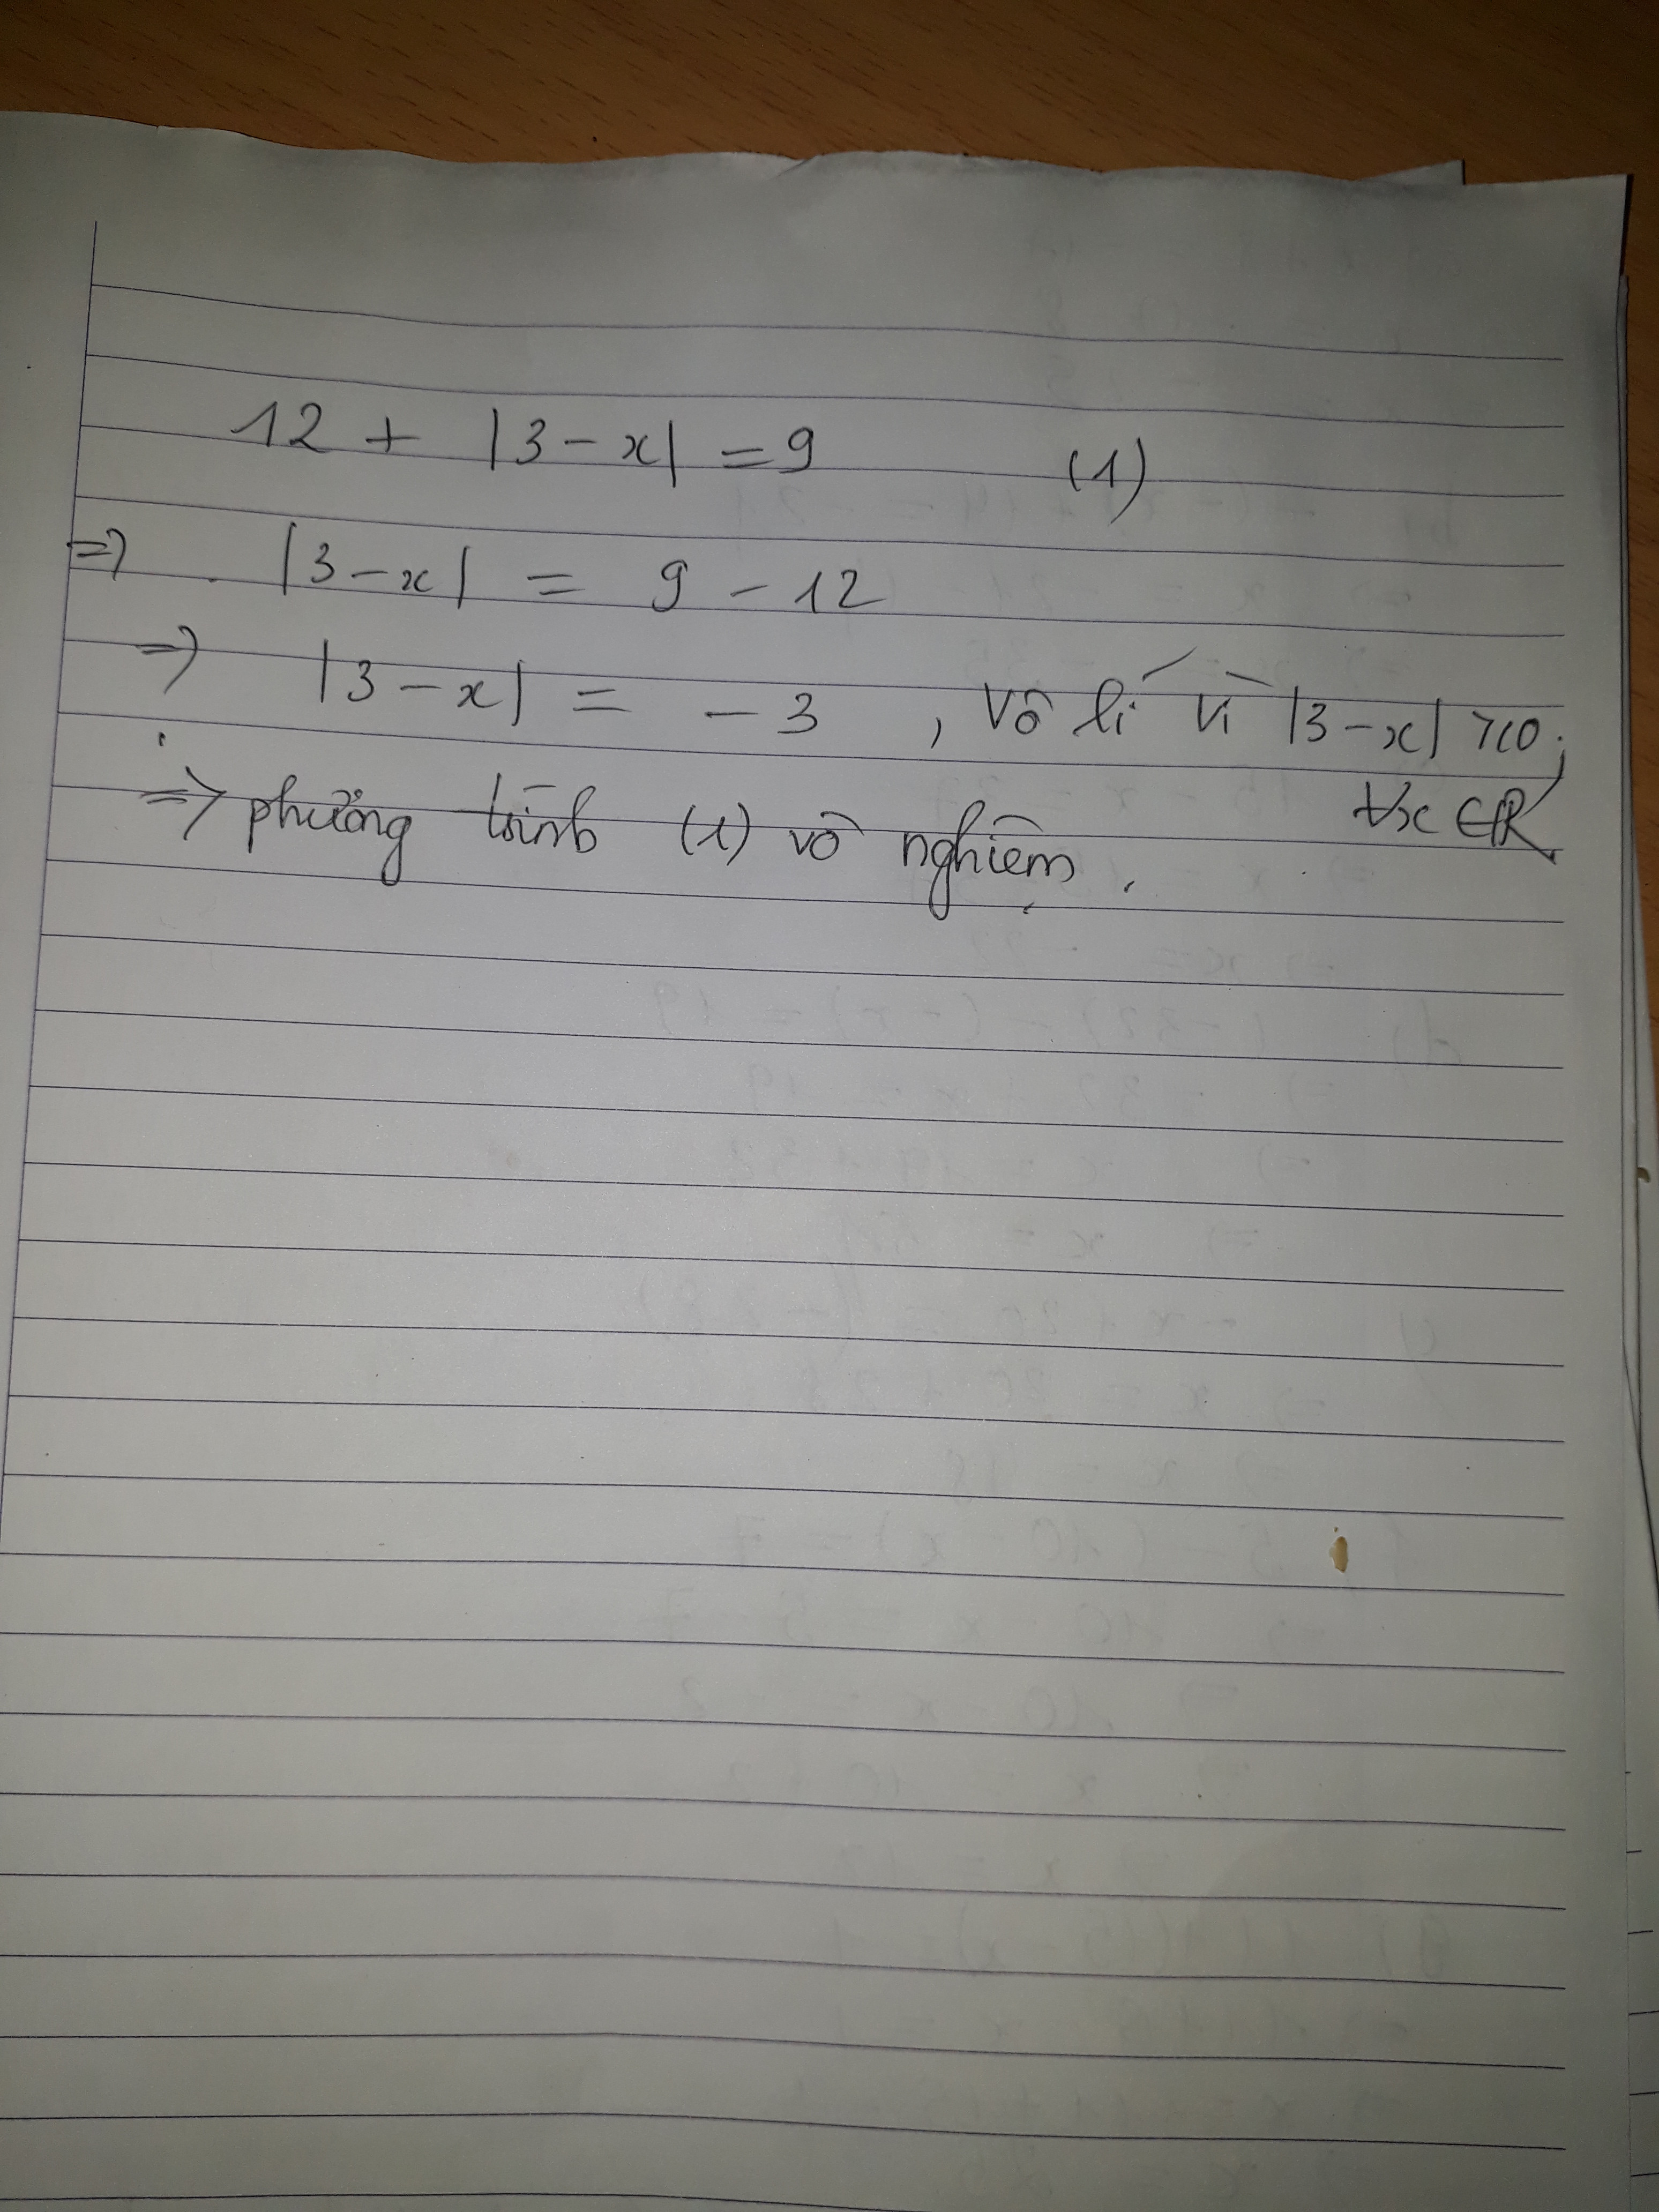 12 + |3 - x| = 9 (1)
=> |3 - x| = 9 - 12
=> |3 - x| = - 3 , vô lí vì |3 - x| ≥ 0 ;
∀x ∈ R
=> phương trình (1) vô nghiệm .